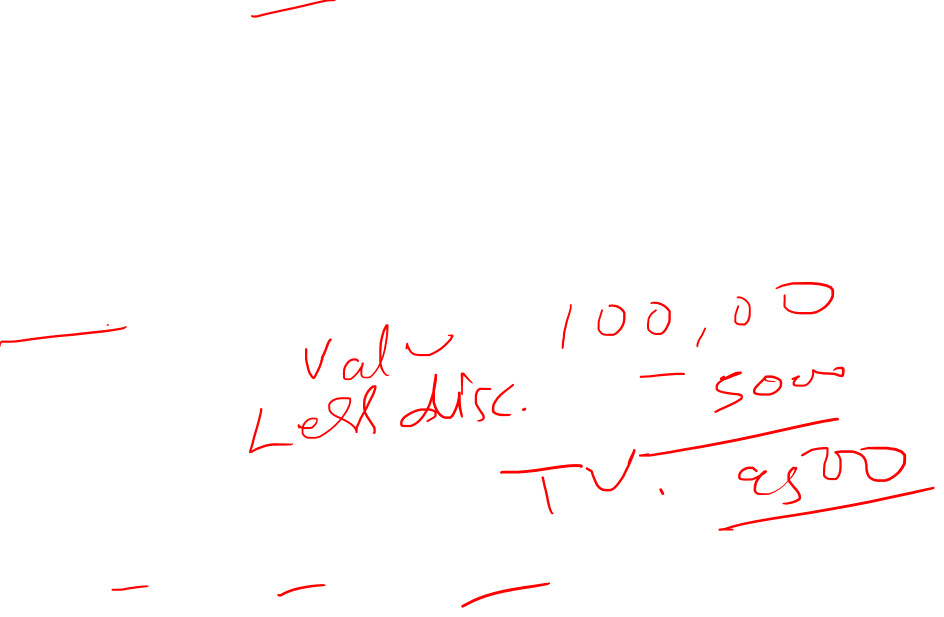 Value 100,000
Less disc. - 5000
TV. 95000